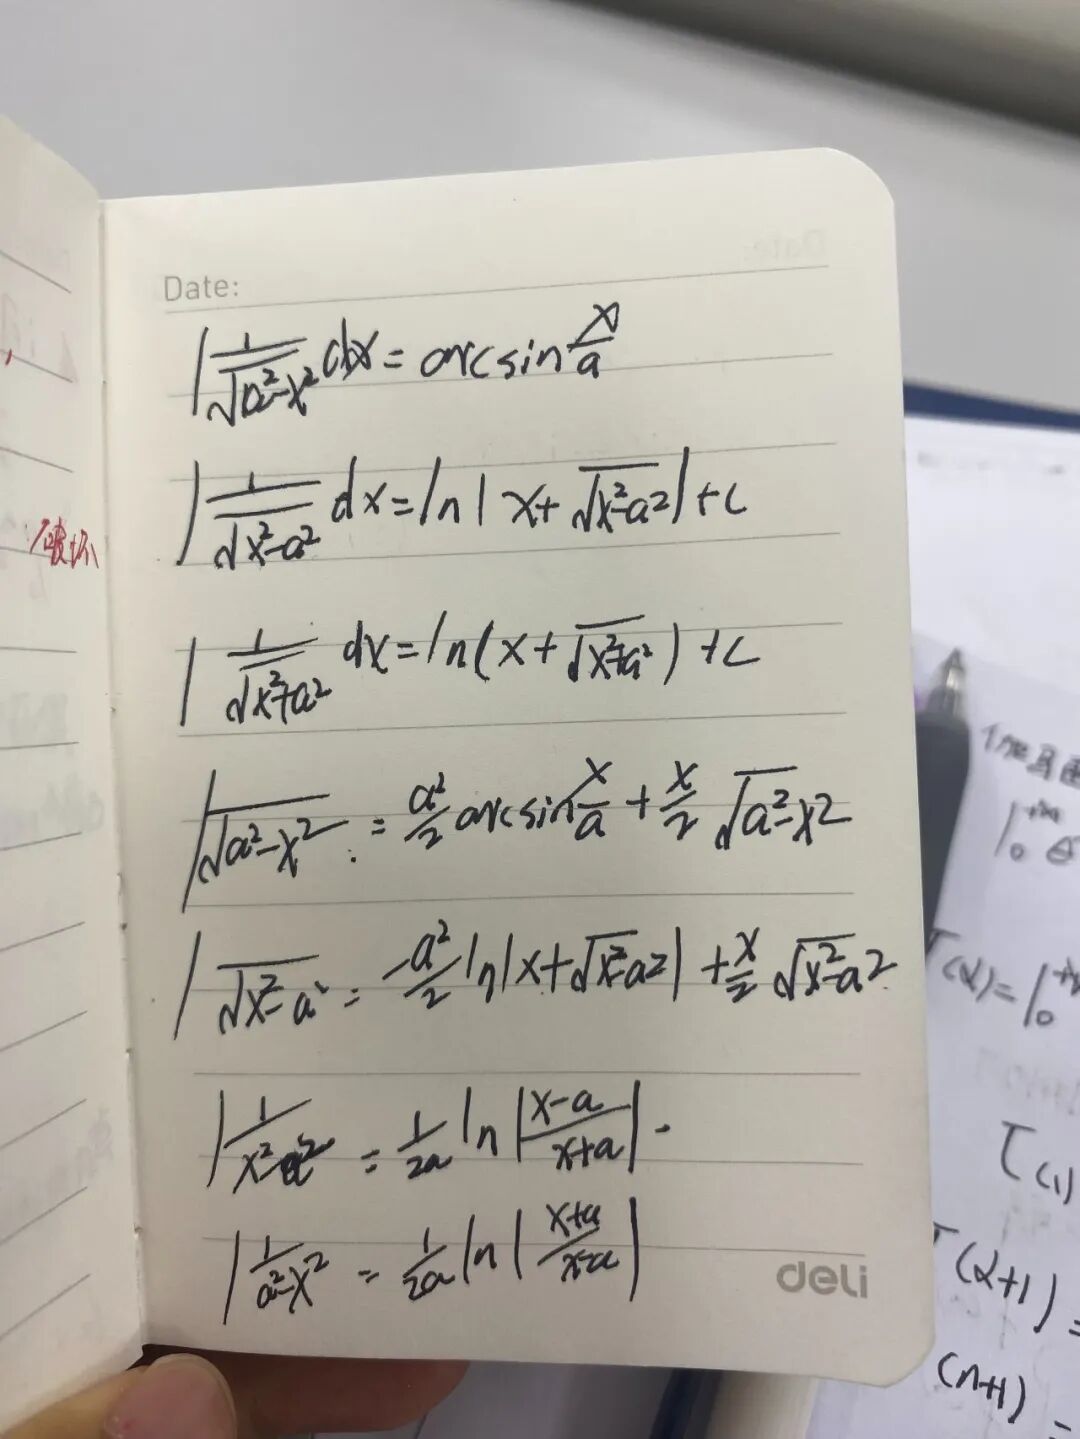 Date:
∫ 1/√(a²-x²) dx = arcsin x/a
∫ 1/√(x²-a²) dx = ln|x+√(x²-a²)|+c
∫ 1/√(x²+a²) dx = ln(x+√(x²+a²))+c
∫ √(a²-x²) = a²/2 arcsin x/a + x/2 √(a²-x²)
∫ √(x²-a²) = -a²/2 ln|x+√(x²-a²)| + x/2 √(x²-a²)
∫ 1/(x²-a²) = 1/2a ln|(x-a)/(x+a)|.
∫ 1/(a²-x²) = 1/2a ln|(x+a)/(x-a)|
deli
破坏
T(α)=∫₀
T(1)
T(α+1)=
(n+1)=